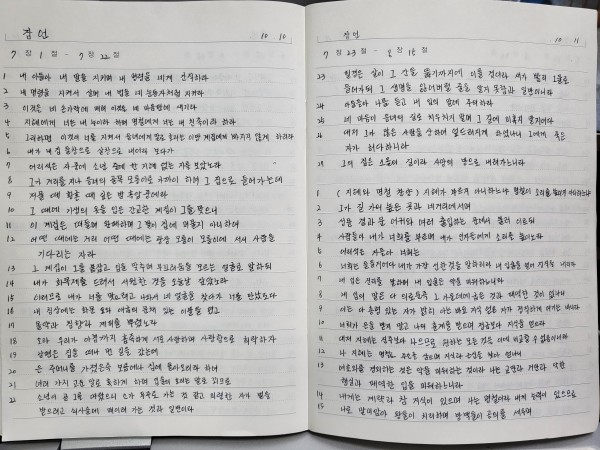 잠언 10 10
7 장 1 절 - 7 장 22 절
1 내 아들아 내 말을 지키며 내 명령을 네게 간직하라
2 내 명령을 지켜서 살며 내 법을 네 눈동자처럼 지키라
3 이것을 네 손가락에 매며 이것을 네 마음판에 새기라
4 지혜에게 너는 내 누이라 하며 명철에게 너는 내 친족이라 하라
5 그리하면 이것이 너를 지켜서 음녀에게 말로 호리는 이방 계집에게 빠지지 않게 하리라
6 내가 내 집 들창으로 살창으로 내어다 보다가
7 어리석은 자 중에 소년 중에 한 지혜 없는 자를 보았노라
8 그가 거리를 지나 음녀의 골목 모퉁이로 가까이 하여 그 집으로 들어가는데
9 저물 때 황혼 때 깊은 밤 흑암 중에라
10 그 때에 기생의 옷을 입은 간교한 계집이 그를 맞으니
11 이 계집은 떠들며 완패하며 그 발이 집에 머물지 아니하여
12 어떤 때에는 거리 어떤 때에는 광장 모퉁이 모퉁이에 서서 사람을
기다리는 자라
13 그 계집이 그를 붙잡고 입을 맞추며 부끄러움을 모르는 얼굴로 말하되
14 내가 화목제를 드려서 서원한 것을 오늘날 갚았노라
15 이러므로 내가 너를 맞으려고 나와서 네 얼굴을 찾다가 너를 만났도다
16 내 침상에는 화문 요와 애굽의 문채 있는 이불을 폈고
17 몰약과 침향과 계피를 뿌렸노라
18 오라 우리가 아침까지 흡족하게 서로 사랑하며 사랑함으로 희락하자
19 남편은 집을 떠나 먼 길을 갔는데
20 은 주머니를 가졌은즉 보름에나 집에 돌아오리라 하여
21 여러 가지 고운 말로 혹하게 하며 입술의 호리는 말로 꾀므로
22 소년이 곧 그를 따랐으니 소가 푸주로 가는 것 같고 미련한 자가 벌을
받으려고 쇠사슬에 매이러 가는 것과 일반이라
잠언 10 11
7 장 23 절 - 8 장 15 절
23 필경은 살이 그 간을 뚫기까지에 이를 것이라 새가 빨리 그물로
들어가되 그 생명을 잃어버릴 줄을 알지 못함과 일반이니라
24 아들들아 나를 듣고 내 입의 말에 주의하라
25 네 마음이 음녀의 길로 치우치지 말며 그 길에 미혹지 말지어다
26 대저 그가 많은 사람을 상하여 엎드러지게 하였나니 그에게 죽은
자가 허다하니라
27 그의 집은 음부의 길이라 사망의 방으로 내려가느니라
1 (지혜와 명철 찬양) 지혜가 부르지 아니하느냐 명철이 소리를 높이지 아니하느냐
2 그가 길 가의 높은 곳과 네거리에 서며
3 성문 곁과 문 어귀와 여러 출입하는 문에서 불러 이르되
4 사람들아 내가 너희를 부르며 내가 인자들에게 소리를 높이노라
5 어리석은 자들아 너희는
6 너희는 들을지어다 내가 가장 선한 것을 말하리라 내 입술을 열어 정직을 내리라
7 내 입은 진리를 말하며 내 입술은 악을 미워하느니라
8 내 입의 말은 다 의로운즉 그 사이에 굽은 것과 패역한 것이 없나니
9 이는 다 총명 있는 자가 밝히 아는 바요 지식 얻은 자가 정직하게 여기는 바니라
10 너희가 은을 받지 말고 나의 훈계를 받으며 정금보다 지식을 얻으라
11 대저 지혜는 진주보다 나으므로 원하는 모든 것을 이에 비교할 수 없음이니라
12 나 지혜는 명철로 주소를 삼으며 지식과 근신을 찾아 얻나니
13 여호와를 경외하는 것은 악을 미워하는 것이라 나는 교만과 거만과 악한
행실과 패역한 입을 미워하느니라
14 내게는 계략과 참 지식이 있으며 나는 명철이라 내게 능력이 있으므로
15 나로 말미암아 왕들이 치리하며 방백들이 공의를 세우며